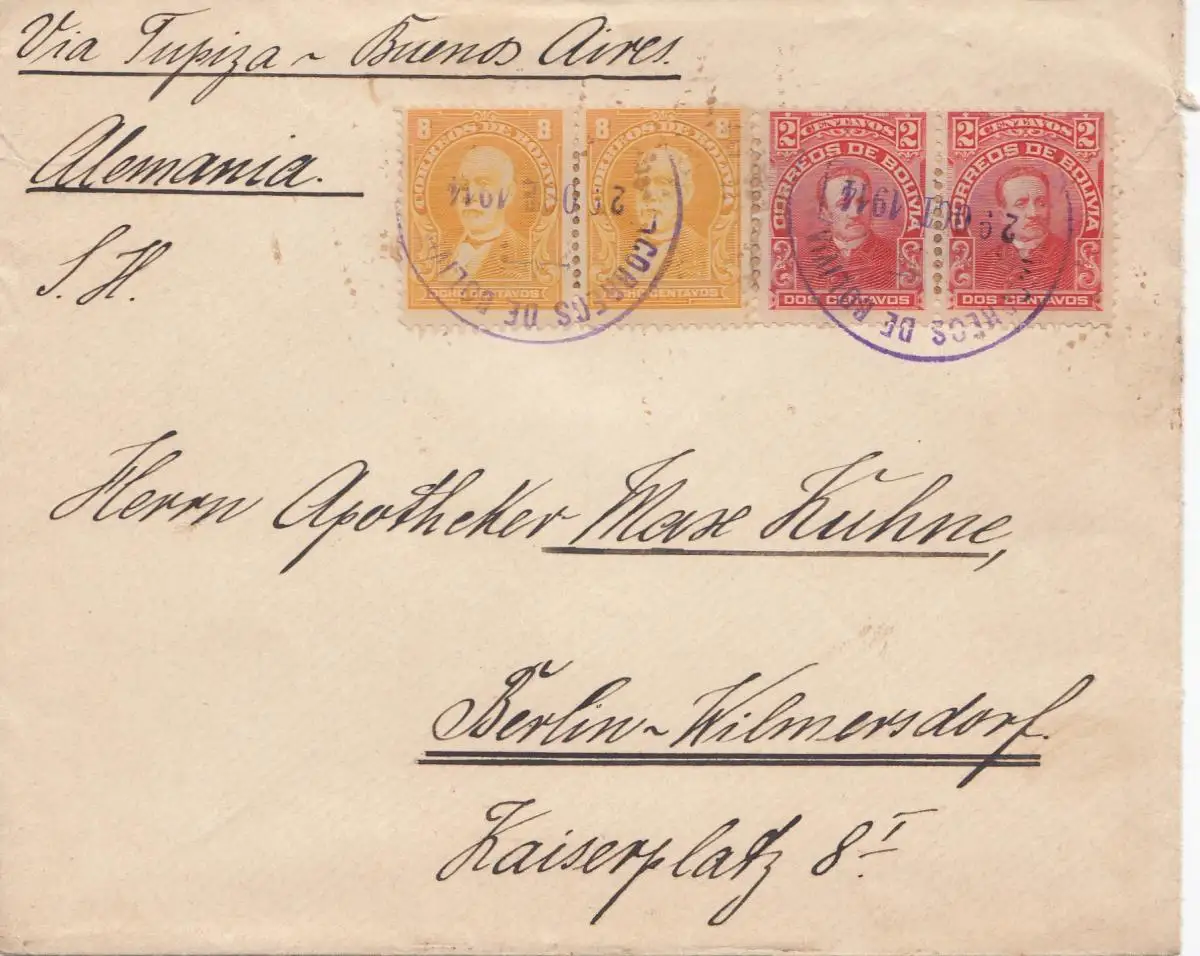 Via Tupiza - Buenos Aires.
Alemania.
S. H.
8 8
CORREOS DE BOLIVIA
OCHO CENTAVOS
8 8
CORREOS DE BOLIVIA
OCHO CENTAVOS
2 CENTAVOS 2
CORREOS DE BOLIVIA
DOS CENTAVOS
2 CENTAVOS 2
CORREOS DE BOLIVIA
DOS CENTAVOS
CORREOS DE BOLIVIA
26 OCT 1914
CORREOS DE BOLIVIA
26 OCT 1914
Herrn Apotheker Max Kuhne,
Berlin-Wilmersdorf.
Kaiserplatz 8 I